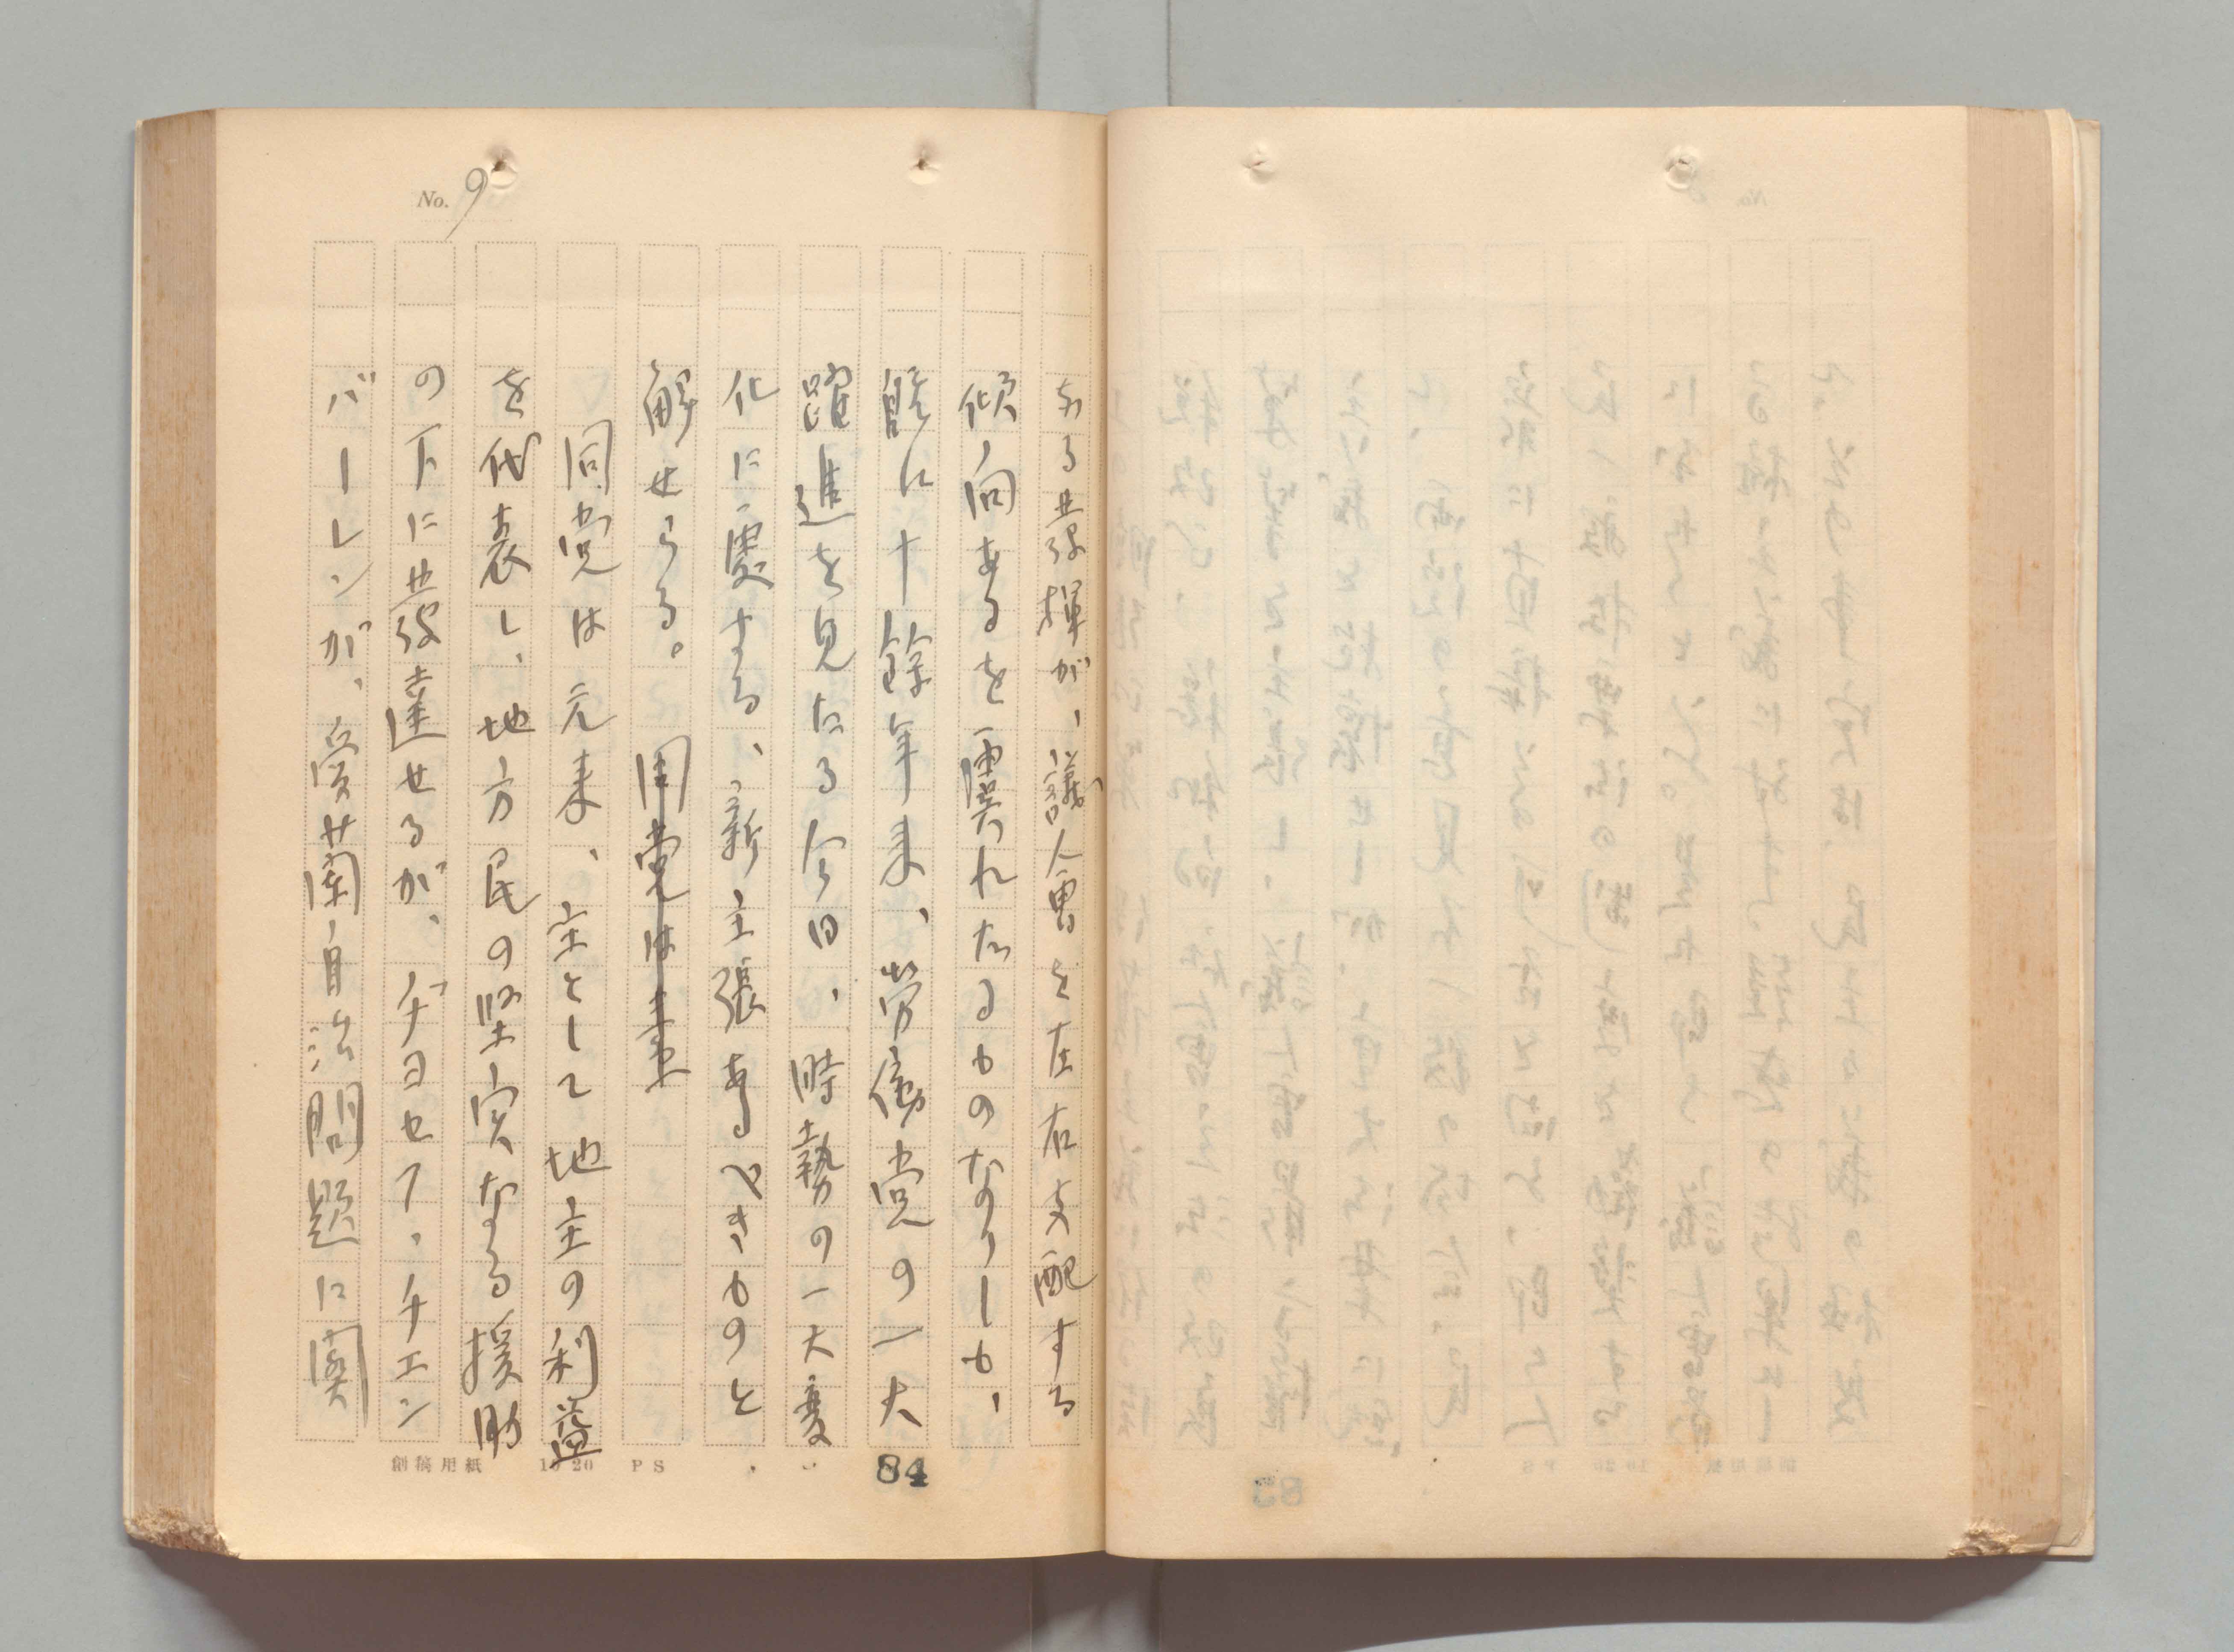 No. 9
ある發揮が、議会を左右支配する
傾向あるを露はれたるものなりしも、
既に十餘年来、労働党の一大
躍進を見たる今日、時勢の一大変
化に處する、新主張あるべきものと
解せらる。同党は元来
同党は元来、主として地主の利益
を代表し、地方民の堅実なる援助
の下に發達せるが、ヂョセフ、チエン
バーレンが、愛蘭自治問題に関
創稿用紙 10 20 PS
84